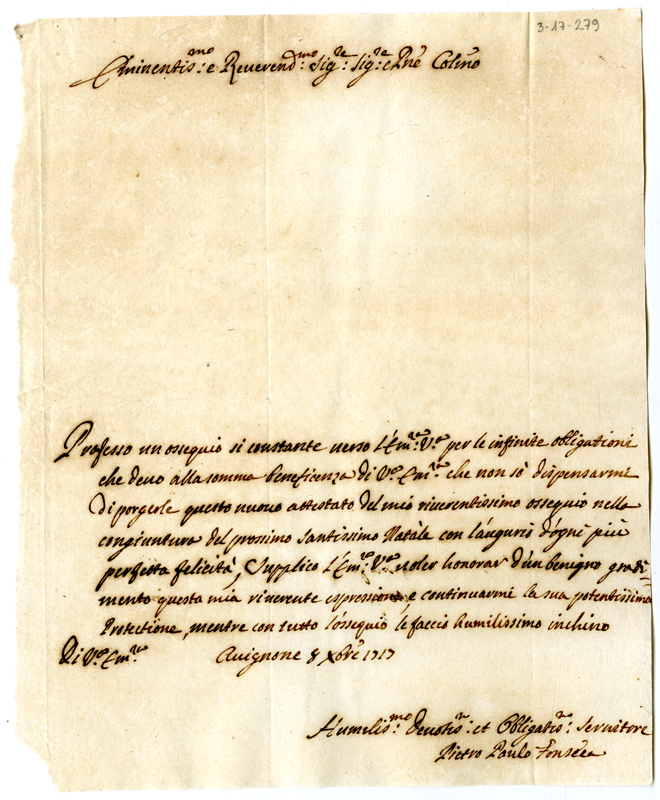 3-17-279
Eminentis:mo e Reverendmo: Sigre: Sig:re e Pne Colmo
Professo un ossequio si constante verso l'Em:za V:ra per le infinite obligationi
che devo alla somma beneficenza di V:ra Em:za che non sò dispensarmi
di porgerle questo nuovo attestato del mio riverentissimo ossequio nella
congiuntura del prossimo Santissimo Natale con l'augurio d'ogni più
perfetta felicità, Supplico l'Em:za V:ra voler honorar d'un benigno gradi=
mento questa mia riverente espressione, e continuarmi la sua potentissima
Protectione, mentre con tutto l'ossequio le faccio humilissimo inchino
Di V:ra Em:za Avignone 8 Xbre 1717
Humilis:mo Devotis: et Obligatis:mo Servitore
Pietro Paulo Fonseca